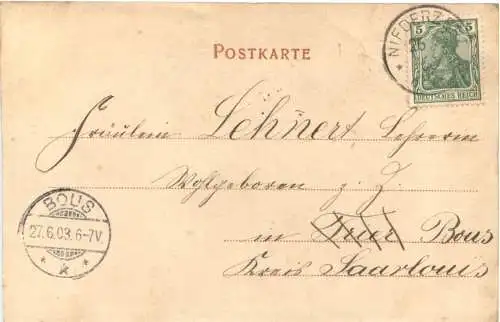 NIEDERZ
26
5 5
DEUTSCHES REICH
POSTKARTE
Fräulein Lehnert, Lehrerin
Wohlgeboren z. Z.
in Trier Bous
Kreis Saarlouis
BOUS
27.6.03.6-7V.